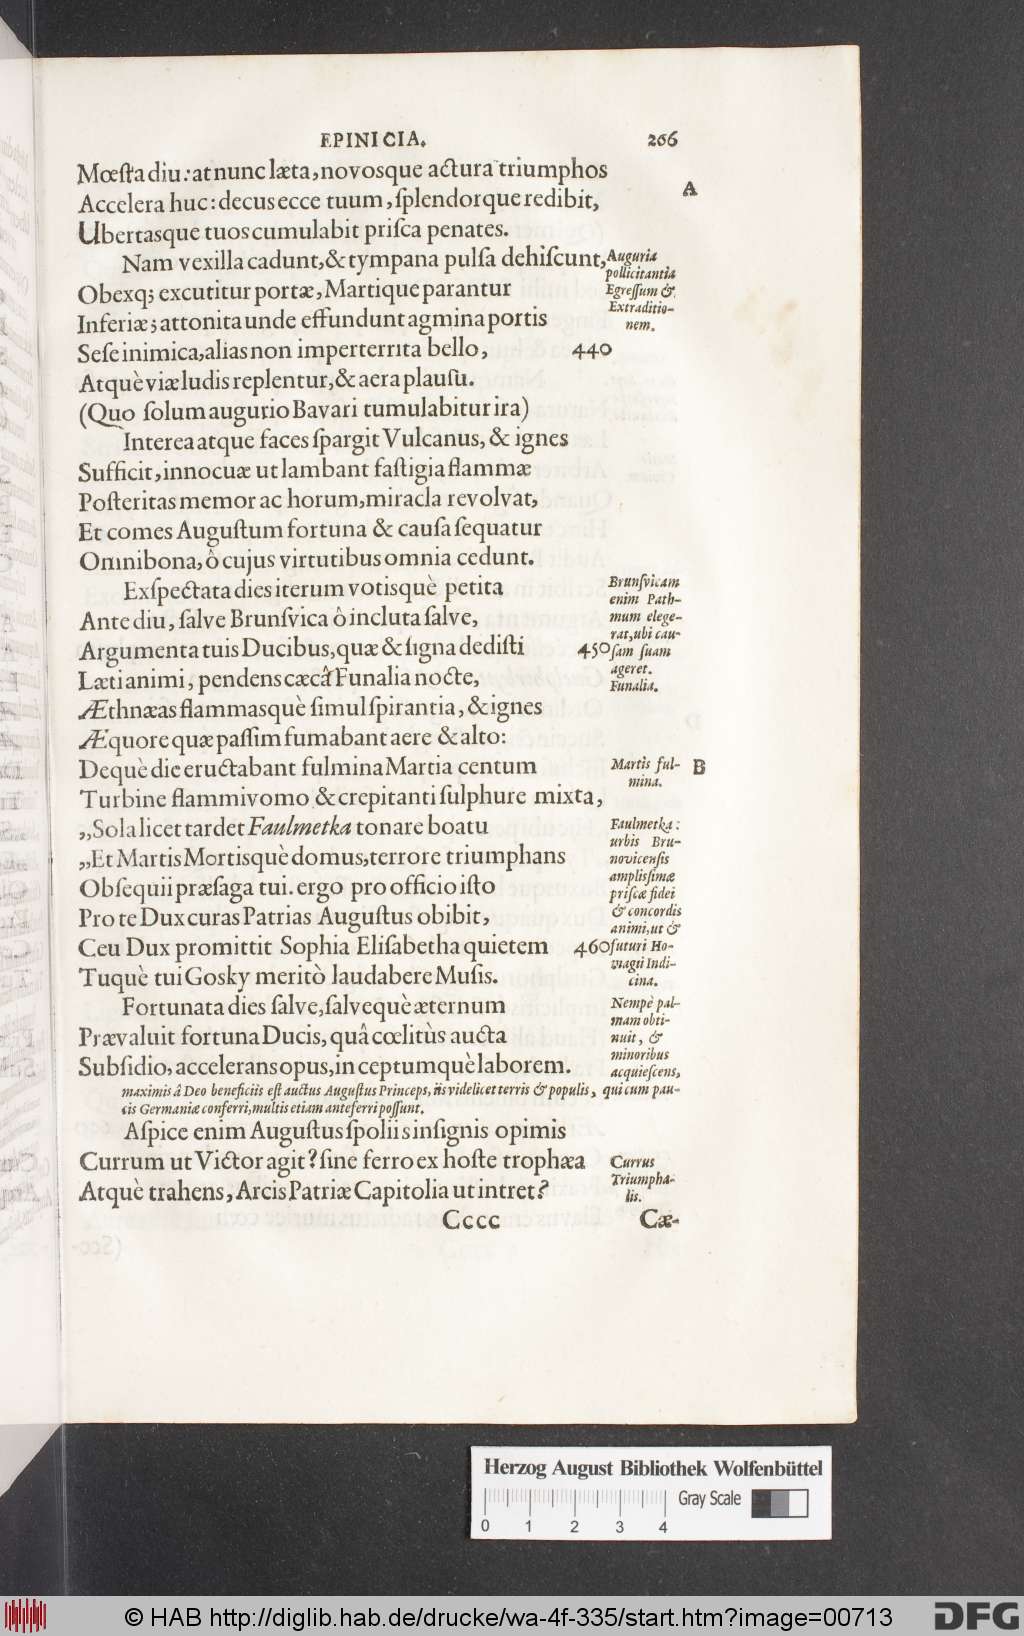 EPINICIA. 266
Mœſta diu: at nunc læta, novosque actura triumphos
A
Accelera huc: decus ecce tuum, ſplendorque redibit,
Ubertasque tuos cumulabit priſca penates.
Nam vexilla cadunt, & tympana pulſa dehiſcunt,
Obexq; excutitur portæ, Martique parantur
Inferiæ; attonita unde effundunt agmina portis
Seſe inimica, alias non imperterrita bello, 440
Atquè viæ ludis replentur, & aera plauſu.
(Quo ſolum augurio Bavari tumulabitur ira)
Auguria
pollicitantia
Egreſſum &
Extraditio-
nem.
Interea atque faces ſpargit Vulcanus, & ignes
Sufficit, innocuæ ut lambant faſtigia flammæ
Poſteritas memor ac horum, miracla revolvat,
Et comes Auguſtum fortuna & cauſa ſequatur
Omnibona, ô cujus virtutibus omnia cedunt.
Exſpectata dies iterum votisquè petita
Ante diu, ſalve Brunſvica ô incluta ſalve,
Argumenta tuis Ducibus, quæ & ſigna dediſti 450
Læti animi, pendens cæcâ Funalia nocte,
Æthnæas flammasquè ſimul ſpirantia, & ignes
Æquore quæ paſſim fumabant aere & alto:
Brunſvicam
enim Path-
mum elege-
rat, ubi cau-
ſam ſuam
ageret.
Funalia.
Dequè die eructabant fulmina Martia centum
Martis ful-
mina.
B
Turbine flammivomo & crepitanti ſulphure mixta,
„Sola licet tardet Faulmetka tonare boatu
„Et Martis Mortisquè domus, terrore triumphans
Obſequii præſaga tui. ergo pro officio iſto
Pro te Dux curas Patrias Auguſtus obibit,
Ceu Dux promittit Sophia Eliſabetha quietem 460
Tuquè tui Gosky meritò laudabere Muſis.
Faulmetka:
urbis Bru-
novicenſis
ampliſsimæ
priſcæ fidei
& concordis
animi, ut &
futuri Ho-
magii Indi-
cina.
Fortunata dies ſalve, ſalvequè æternum
Prævaluit fortuna Ducis, quâ cœlitùs aucta
Subſidio, accelerans opus, inceptumquè laborem.
Nempè pal-
mam obti-
nuit, &
minoribus
acquieſcens,
maximis â Deo beneficiis eſt auctus Auguſtus Princeps, iis videlicet terris & populis, qui cum pau-
cis Germaniæ conferri, multis etiam anteferri poſſunt.
Aſpice enim Auguſtus ſpoliis inſignis opimis
Currum ut Victor agit? ſine ferro ex hoſte trophæa
Atquè trahens, Arcis Patriæ Capitolia ut intret?
Currus
Triumpha-
lis.
Cccc Cæ-
Herzog August Bibliothek Wolfenbüttel
Gray Scale
0 1 2 3 4
© HAB http://diglib.hab.de/drucke/wa-4f-335/start.htm?image=00713
DFG